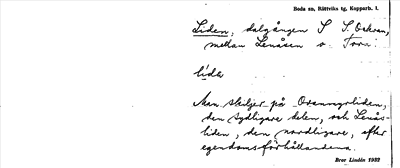 Boda sn, Rättviks tg, Kopparb. l.
Liden, dalgången S S. Oskran,
mellan Lenåsen o.
li̇́da
Man skiljer på Oranmyrliden,
den sydligare delen, och Lenås-
liden, den nordligare, efter
egendomsförhållandena.
Bror Lindén 1932